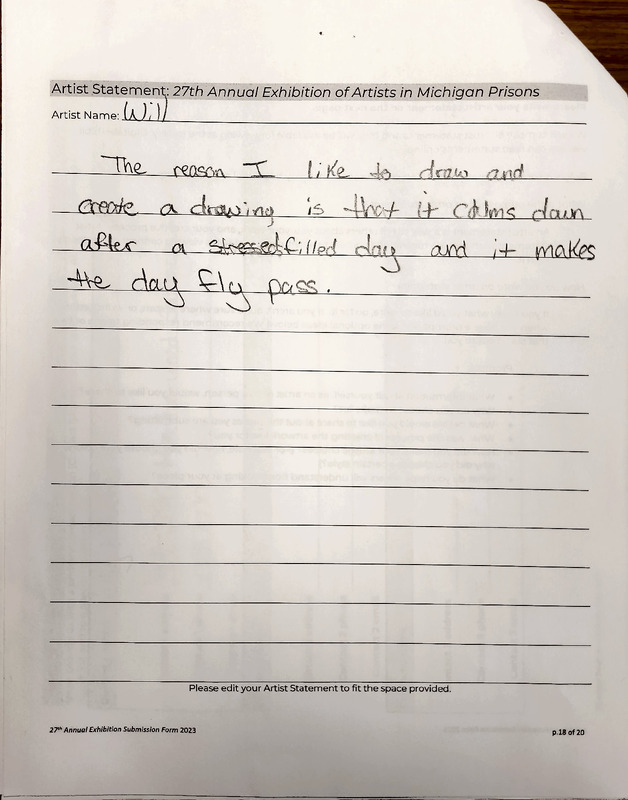 Artist Statement: 27th Annual Exhibition of Artists in Michigan Prisons
Artist Name: Will
The reason I like to draw and
create a drawing is that it calms down
after a stressedfilled day and it makes
the day fly pass.
Please edit your Artist Statement to fit the space provided.
27th Annual Exhibition Submission Form 2023
p.18 of 20